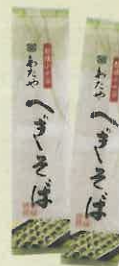 わたや
へぎそば
わたや
へぎそば